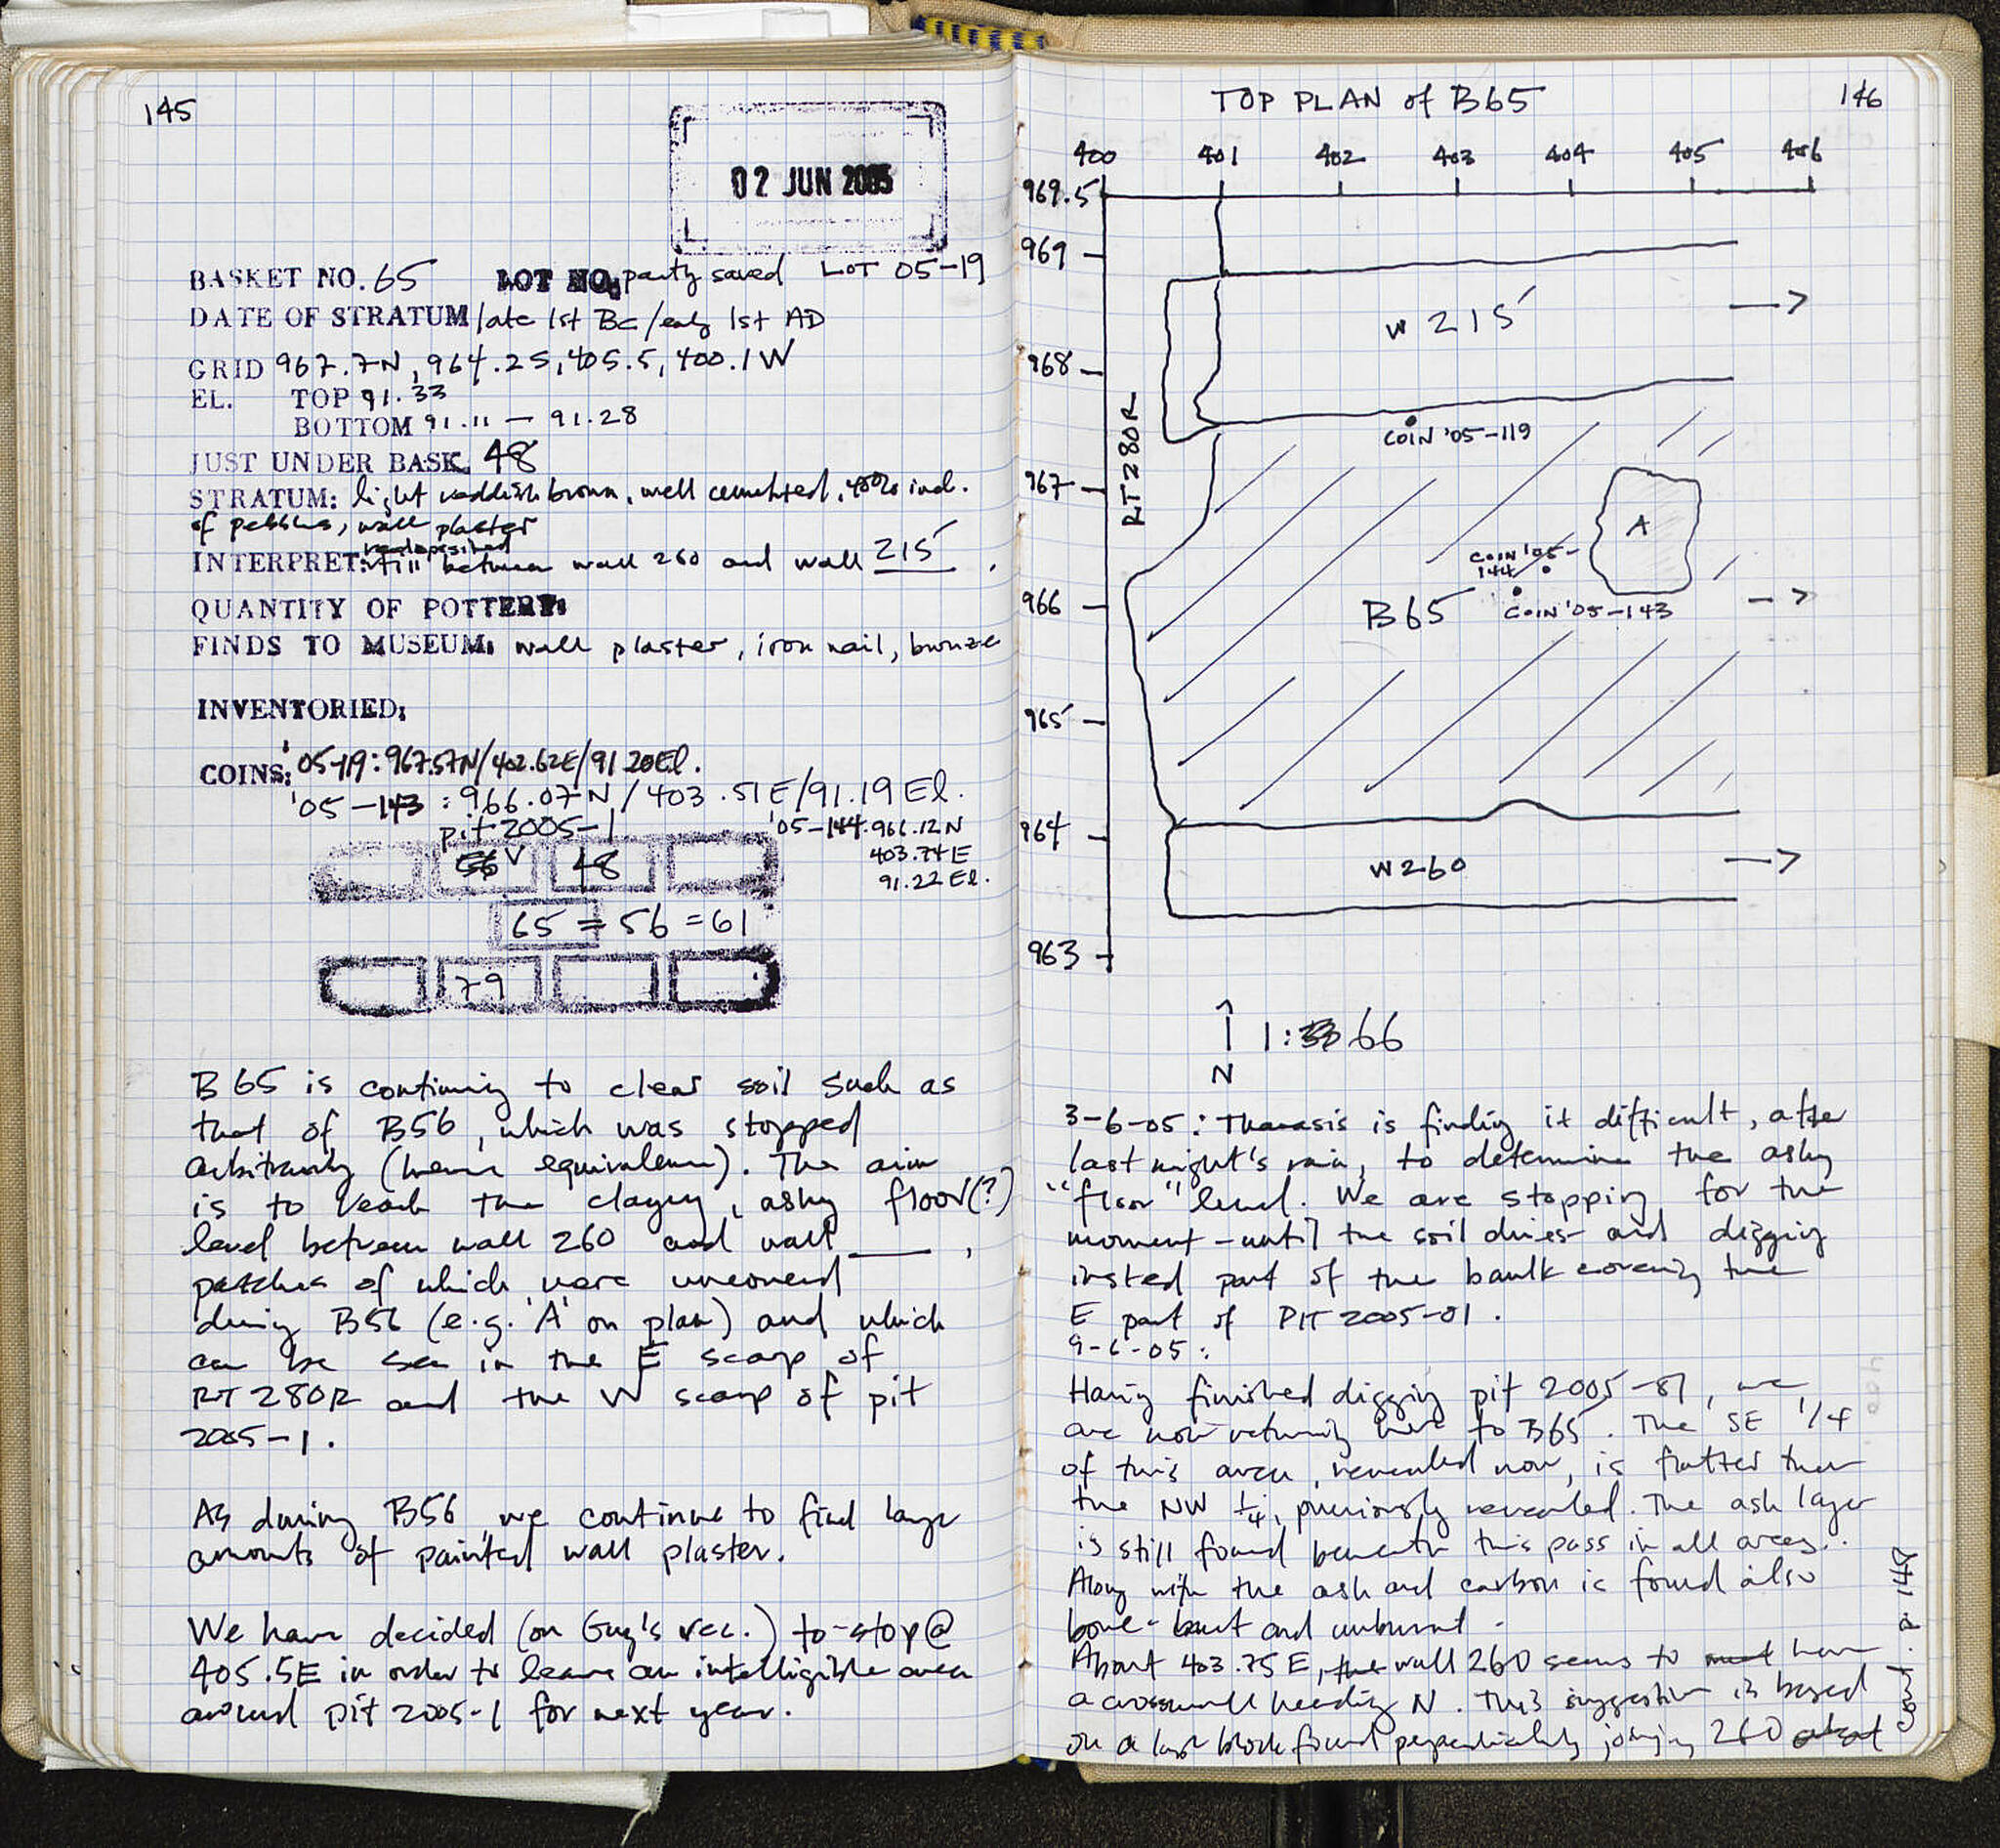 145
02 JUN 2005
BASKET NO. 65 LOT NO. partly saved LOT 05-19
DATE OF STRATUM late 1st BC/early 1st AD
GRID 967.7N, 964.2S, 405.5, 400.1W
EL. TOP 91.33
BOTTOM 91.11 — 91.28
JUST UNDER BASK. 48
STRATUM: light reddish brown, well cemented, 40% incl.
of pebbles, wall plaster
INTERPRET: fill between wall 260 and wall 215.
QUANTITY OF POTTERY:
FINDS TO MUSEUM: wall plaster, iron nail, bronze
INVENTORIED:
COINS: '05-119: 967.57N/402.62E/91.20El.
'05-143: 966.07N/403.51E/91.19El.
pit 2005-1 '05-144: 966.12N
403.74E
91.22El.
48
65 = 56 = 61
79
B65 is continuing to clear soil such as
that of B56, which was stopped
arbitrarily (hence equivalence). The aim
is to reach the clayey, ashy floor(?)
level between wall 260 and wall ____,
patches of which were uncovered
during B56 (e.g. 'A' on plan) and which
can be seen in the E scarp of
RT280R and the W scarp of pit
2005-1.
As during B56, we continue to find large
amounts of painted wall plaster.
We have decided (on Guy's rec.) to stop @
405.5E in order to leave an intelligible area
around pit 2005-1 for next year.
TOP PLAN of B65
146
400 401 402 403 404 405 406
969.5
969
W215
968
RT280R
COIN '05-119
967
A
COIN '05-
144
966
B65
COIN '05-143
965
964
W260
963
N
1:66
3-6-05: Thanasis is finding it difficult, after
last night's rain, to determine the ashy
"floor" level. We are stopping for the
moment - until the soil dries - and digging
insted part of the baulk covering the
E part of PIT 2005-01.
9-6-05:
Having finished digging pit 2005-01, we
are now returning here to B65. The SE 1/4
of this area, revealed now, is flatter than
the NW 1/4, previously revealed. The ash layer
is still found beneath this pass in all areas.
Along with the ash and carbon is found also
bone - burnt and unburnt.
About 403.75E, wall 260 seems to have
a crosswall heading N. This suggestion is based
on a large block found perpendicularly joining 260
Cont p. 149